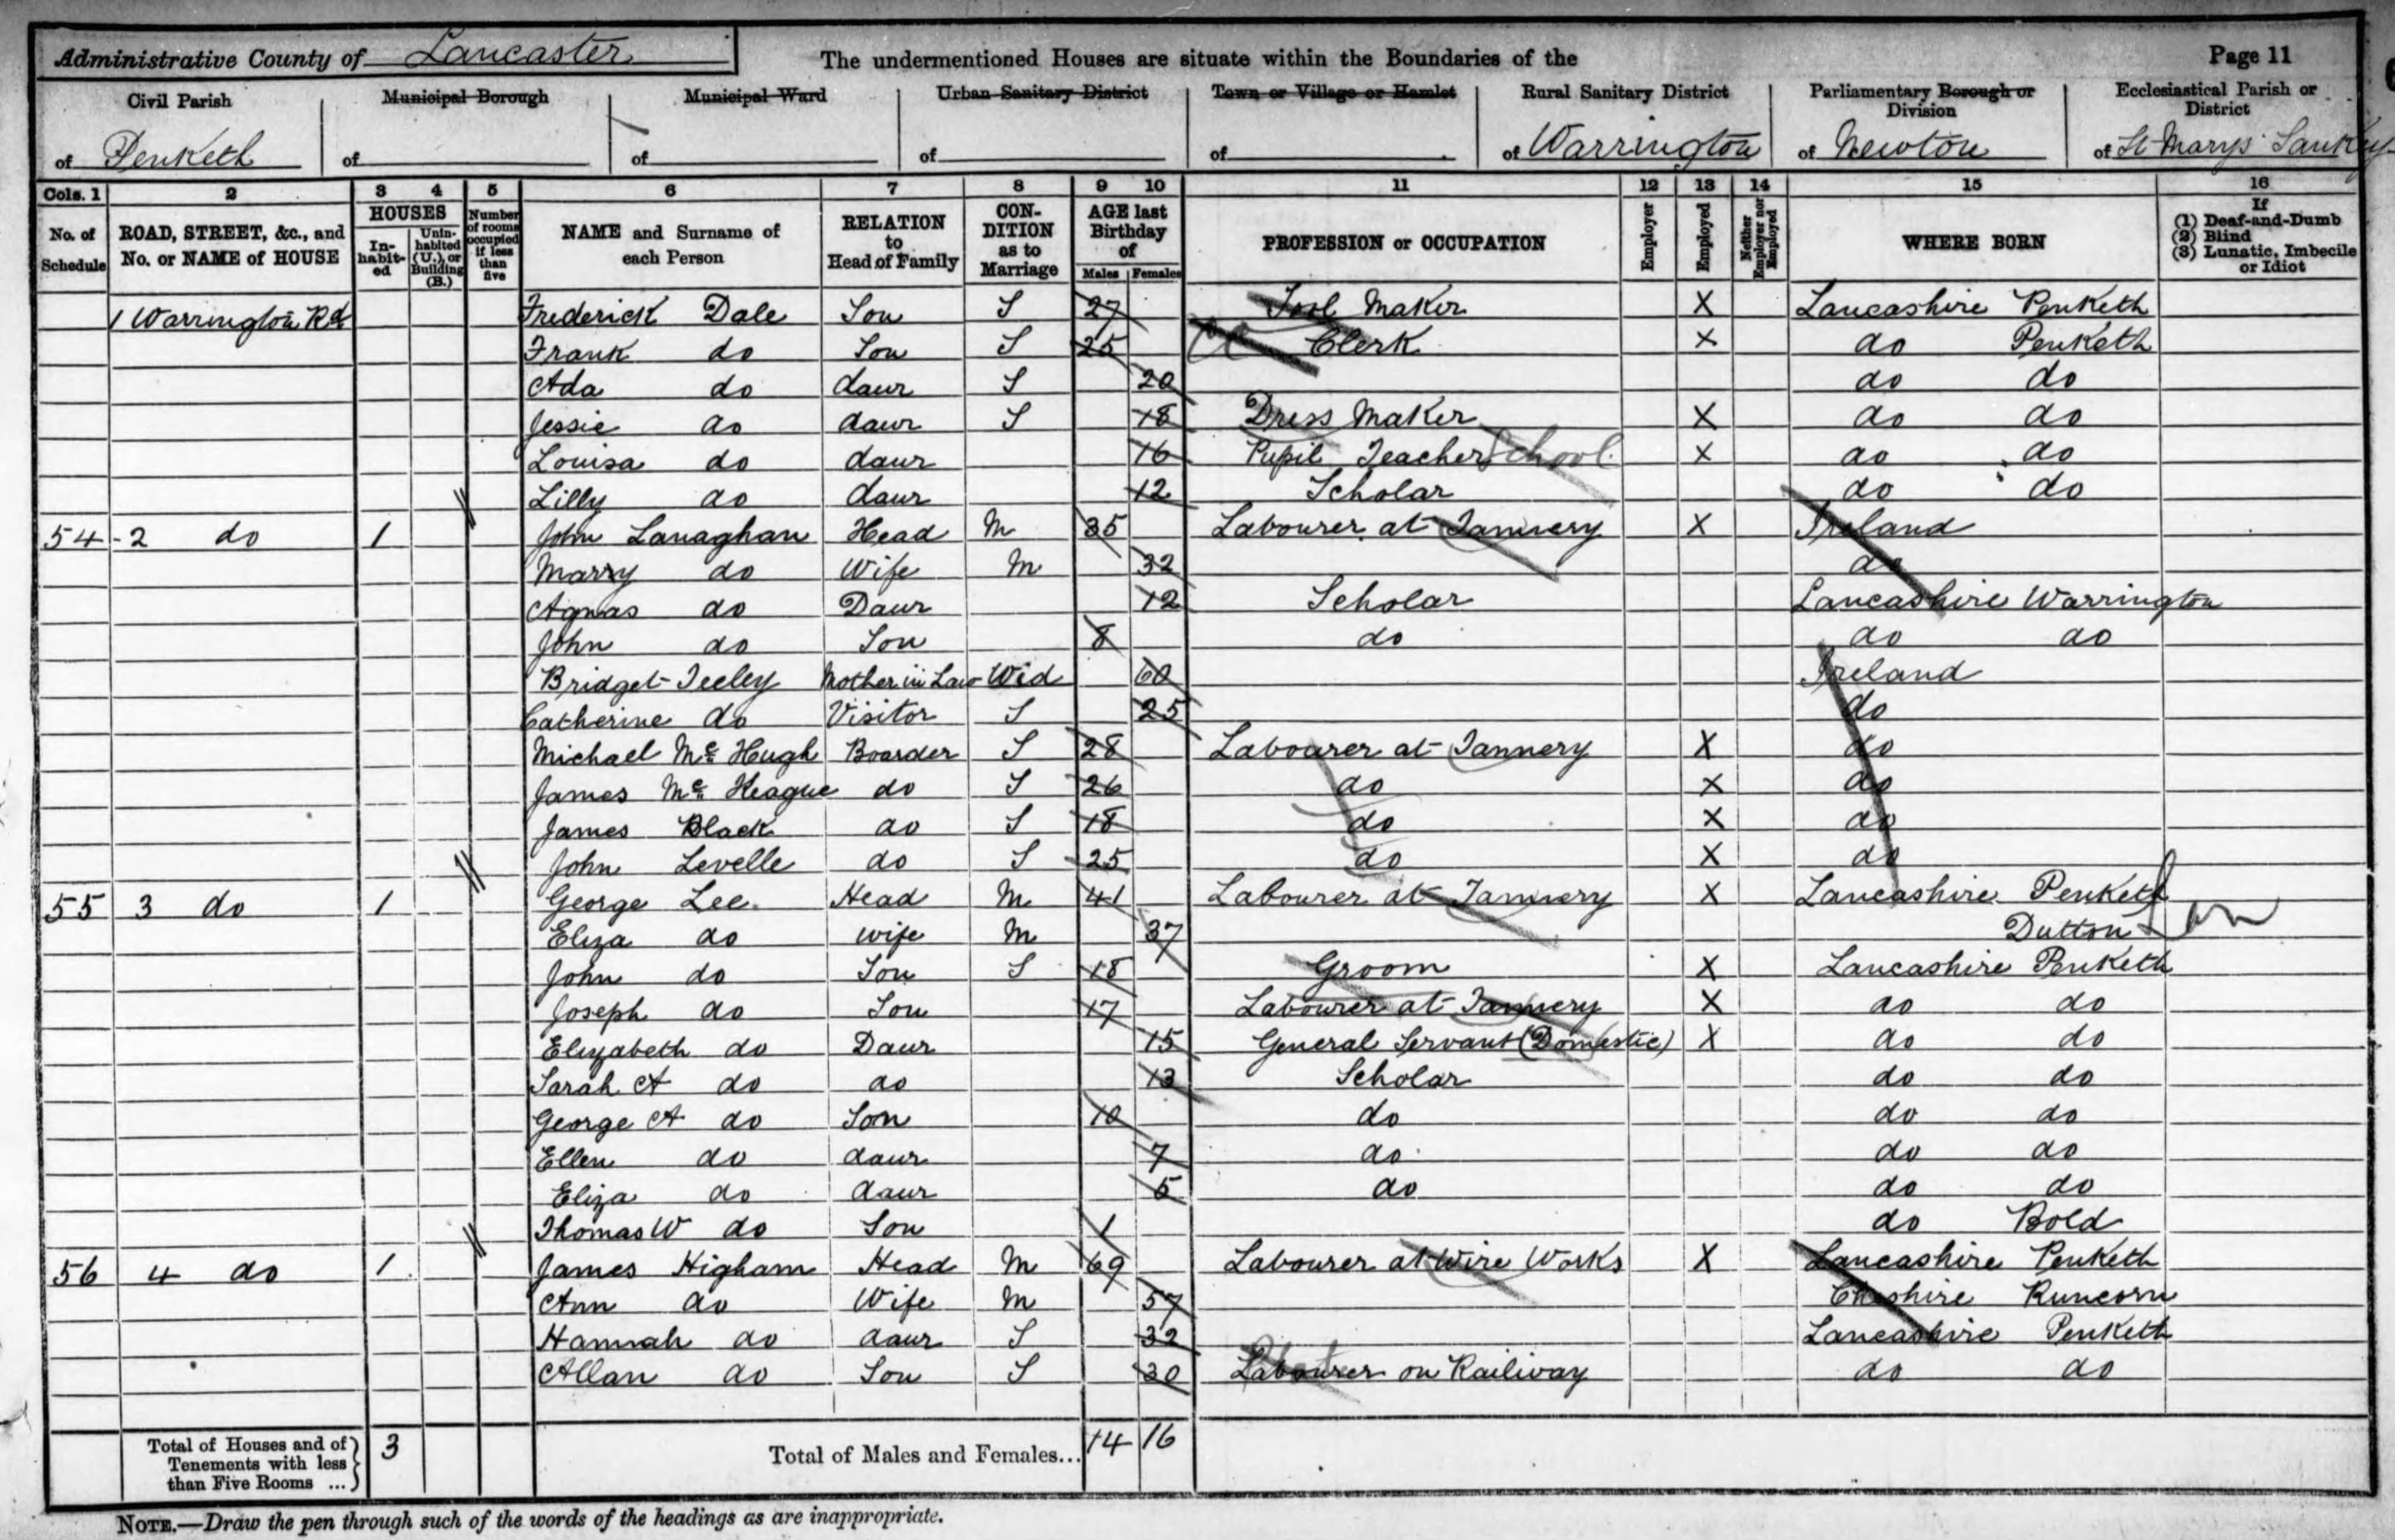 Administrative County of Lancaster The undermentioned Houses are situate within the Boundaries of the Page 11
Civil Parish of Penketh
Municipal Borough of
Municipal Ward of
Urban Sanitary District of
Town or Village or Hamlet of
Rural Sanitary District of Warrington
Parliamentary Borough or Division of Newton
Ecclesiastical Parish or District of St Marys Sankey
Cols. 1 2 3 4 5 6 7 8 9 10 11 12 13 14 15 16
No. of Schedule
ROAD, STREET, &c., and No. or NAME of HOUSE
HOUSES
In-habit-ed
Unin-habited (U.), or Building (B.)
Number of rooms occupied if less than five
NAME and Surname of each Person
RELATION to Head of Family
CON-DITION as to Marriage
AGE last Birthday of
Males Females
PROFESSION or OCCUPATION
Employer
Employed
Neither Employer nor Employed
WHERE BORN
If (1) Deaf-and-Dumb (2) Blind (3) Lunatic, Imbecile or Idiot
1 Warrington Rd Frederick Dale Son S 27 Tool Maker X Lancashire Penketh
Frank do Son S 25 Clerk X do Penketh
Ada do daur S 20 do do
Jessie do daur S 18 Dress Maker X do do
Louisa do daur 16 Pupil Teacher School X do do
Lilly do daur 12 Scholar do do
54 2 do 1 John Lanaghan Head M 35 Labourer at Tannery X Ireland
Marry do Wife M 32 do
Agnas do Daur 12 Scholar Lancashire Warrington
John do Son 8 do do do
Bridget Teeley Mother in Law Wid 60 Ireland
Catherine do Visitor S 25 do
Michael Mc Hugh Boarder S 28 Labourer at Tannery X do
James Mc Keague do S 26 do X do
James Black do S 18 do X do
John Levelle do S 25 do X do
55 3 do 1 George Lee Head M 41 Labourer at Tannery X Lancashire Penketh
Eliza do wife M 37 Dutton Lan
John do Son S 18 Groom X Lancashire Penketh
Joseph do Son 17 Labourer at Tannery X do do
Elizabeth do Daur 15 General Servant (Domestic) X do do
Sarah A do do 13 Scholar do do
George A do Son 10 do do do
Ellen do daur 7 do do do
Eliza do daur 5 do do do
Thomas W do Son 1 do Bold
56 4 do 1 James Higham Head M 69 Labourer at Wire Works X Lancashire Penketh
Ann do Wife M 57 Cheshire Runcorn
Hannah do daur S 32 Lancashire Penketh
Allan do Son S 30 Labourer on Railway do do
Total of Houses and of Tenements with less than Five Rooms ... 3 Total of Males and Females... 14 16
NOTE.—Draw the pen through such of the words of the headings as are inappropriate.